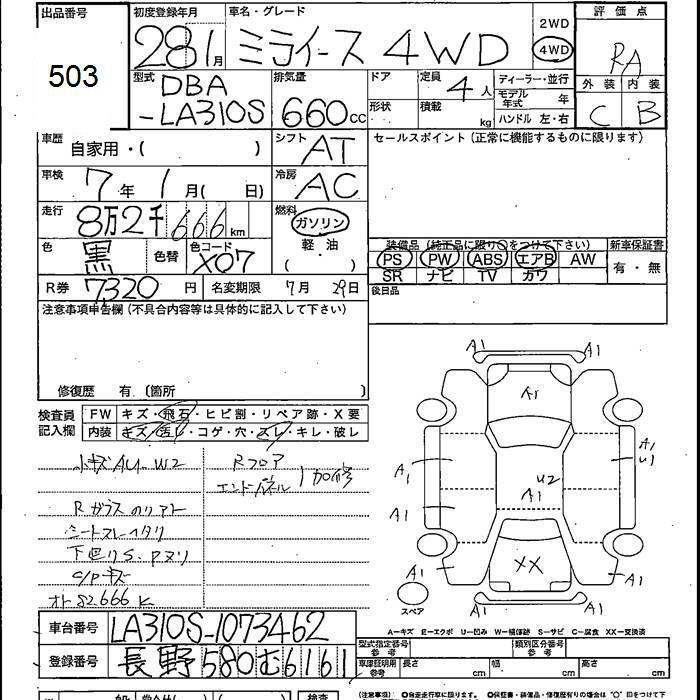 出品番号
503
初度登録年月
28 1月
車名・グレード
ミライース 4WD
2WD
4WD
評価点
RA
外装 内装
C B
型式
DBA
-LA310S
排気量
660cc
ドア
形状
定員
4人
積載
kg
ディーラー・並行
モデル年式 年
ハンドル 左・右
車歴
自家用・( )
シフト
AT
セールスポイント (正常に機能するものに限ります)
車検
7年 1月 ( 日)
冷房
AC
走行
8万2千666km
燃料
ガソリン
軽・油
( )
色
黒
色替
色コード
X07
装備品 (純正品に限り○をつけて下さい)
新車保証書
PS PW ABS エアB AW
SR ナビ TV カワ
有・無
R券 7320円
名変期限 7月 29日
後日品
注意事項申告欄 (不具合内容等は具体的に記入して下さい)
修復歴 有 (箇所 )
検査員
記入欄
FW キズ・飛石・ヒビ割・リペア跡・X要
内装 キズ・汚レ・コゲ・穴・スレ・キレ・破レ
小キズAU.W2
Rフロア
エンドパネル
加修
Rガラス のリアト
シートスレ
下回りS.
C/Pキズ
82.666K
A1 A1
A1
A1
U1
A1
U2
A1
A1
XX
A1
A1
A1
A1
スペア
A-キズ E-エクボ U-凹み W-補修跡 S-サビ C-腐食 XX-交換済
車台番号
LA310S-1073462
登録番号
長野580む6161
型式指定番号
参考
類別区分番号
参考
車庫証明用
参考
長さ cm
幅 cm
高さ cm
(注意事項)
検査